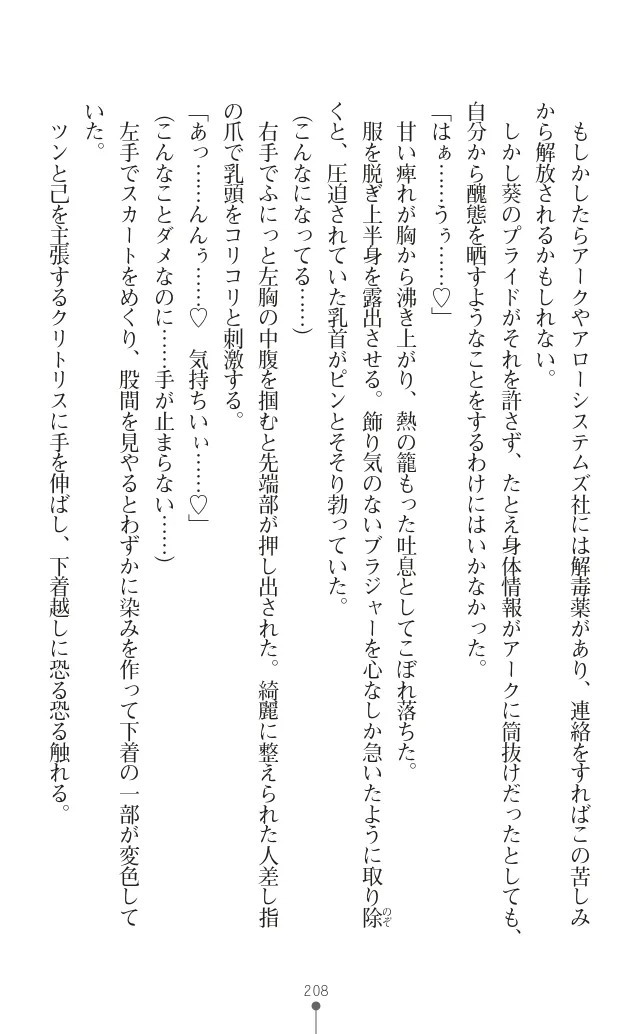 もしかしたらアークやアローシステムズ社には解毒薬があり、連絡をすればこの苦しみ
から解放されるかもしれない。
しかし葵のプライドがそれを許さず、たとえ身体情報がアークに筒抜けだったとしても、
自分から醜態を晒すようなことをするわけにはいかなかった。
「はぁ……うぅ……♡」
甘い痺れが胸から沸き上がり、熱の籠もった吐息としてこぼれ落ちた。
服を脱ぎ上半身を露出させる。飾り気のないブラジャーを心なしか急いたように取り除のぞ
くと、圧迫されていた乳首がピンとそそり勃っていた。
(こんなになってる……)
右手でふにっと左胸の中腹を掴むと先端部が押し出された。綺麗に整えられた人差し指
の爪で乳頭をコリコリと刺激する。
「あっ……んんぅ……♡　気持ちいぃ……♡」
(こんなことダメなのに……手が止まらない……)
左手でスカートをめくり、股間を見やるとわずかに染みを作って下着の一部が変色して
いた。
ツンと己を主張するクリトリスに手を伸ばし、下着越しに恐る恐る触れる。
208